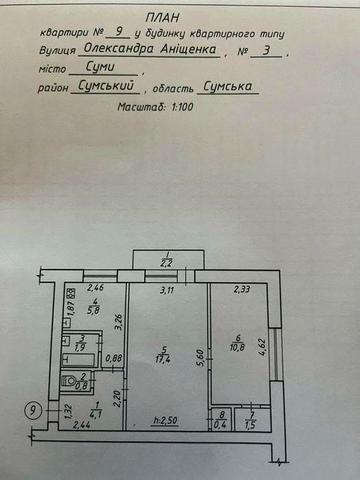 ПЛАН
квартири № 9 у будинку квартирного типу
Вулиця Олександра Аніщенка, № 3,
місто Суми,
район Сумський, область Сумська
Масштаб: 1:100
І
2,2
2,46
3,11
2,33
1,87
4
5,8
3,26
3
1,9
0,88
5
17,4
5,60
6
10,8
4,62
2
0,8
2,20
9
1,32
1
4,1
2,44
h:2,50
8
0,4
7
1,5